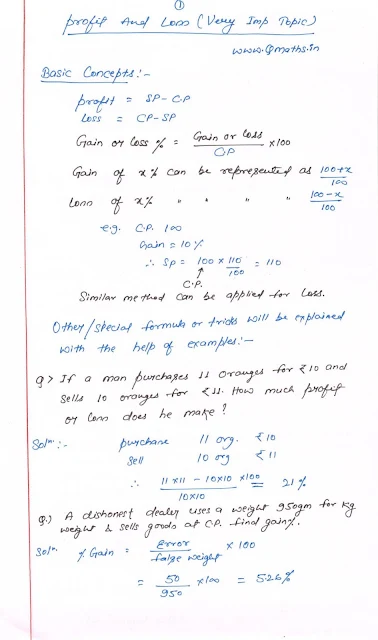 ①
Profit And Loss (Very Imp Topic)
www.Qmaths.in
Basic Concepts:-
profit = SP-CP
Loss = CP-SP
Gain or Loss % = Gain or Loss / CP ×100
Gain of x% can be represented as 100+x / 100
Loss of x% " " " " 100-x / 100
e.g. C.P. 100
Gain = 10%
∴ SP = 100 × 110 / 100 = 110
↑
C.P.
Similar method can be applied for Loss.
Other/special formula or tricks will be explained
with the help of examples:-
Q> If a man purchages 11 oranges for ₹10 and
sells 10 oranges for ₹11. How much profit
or Loss does he make?
Solⁿ:- purchase 11 org. ₹10
Sell 10 org ₹11
∴ 11×11 - 10×10 ×100 / 10×10 = 21%
Q.) A dishonest dealer uses a weight 950gm for kg
weight & sells goods at C.P. find gain%.
Solⁿ. % Gain = Error / false weight × 100
= 50 / 950 ×100 = 5.26%